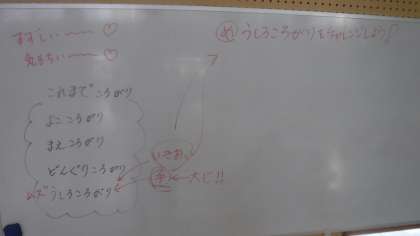 すずしい〜〜♡
気もちい〜〜♡
め うしろころがりをチャレンジしよう!
これまでころがり
よこころがり
まえころがり
どんぐりころがり
ムズ うしろころがり
いきおい
手 ← 大じ!!